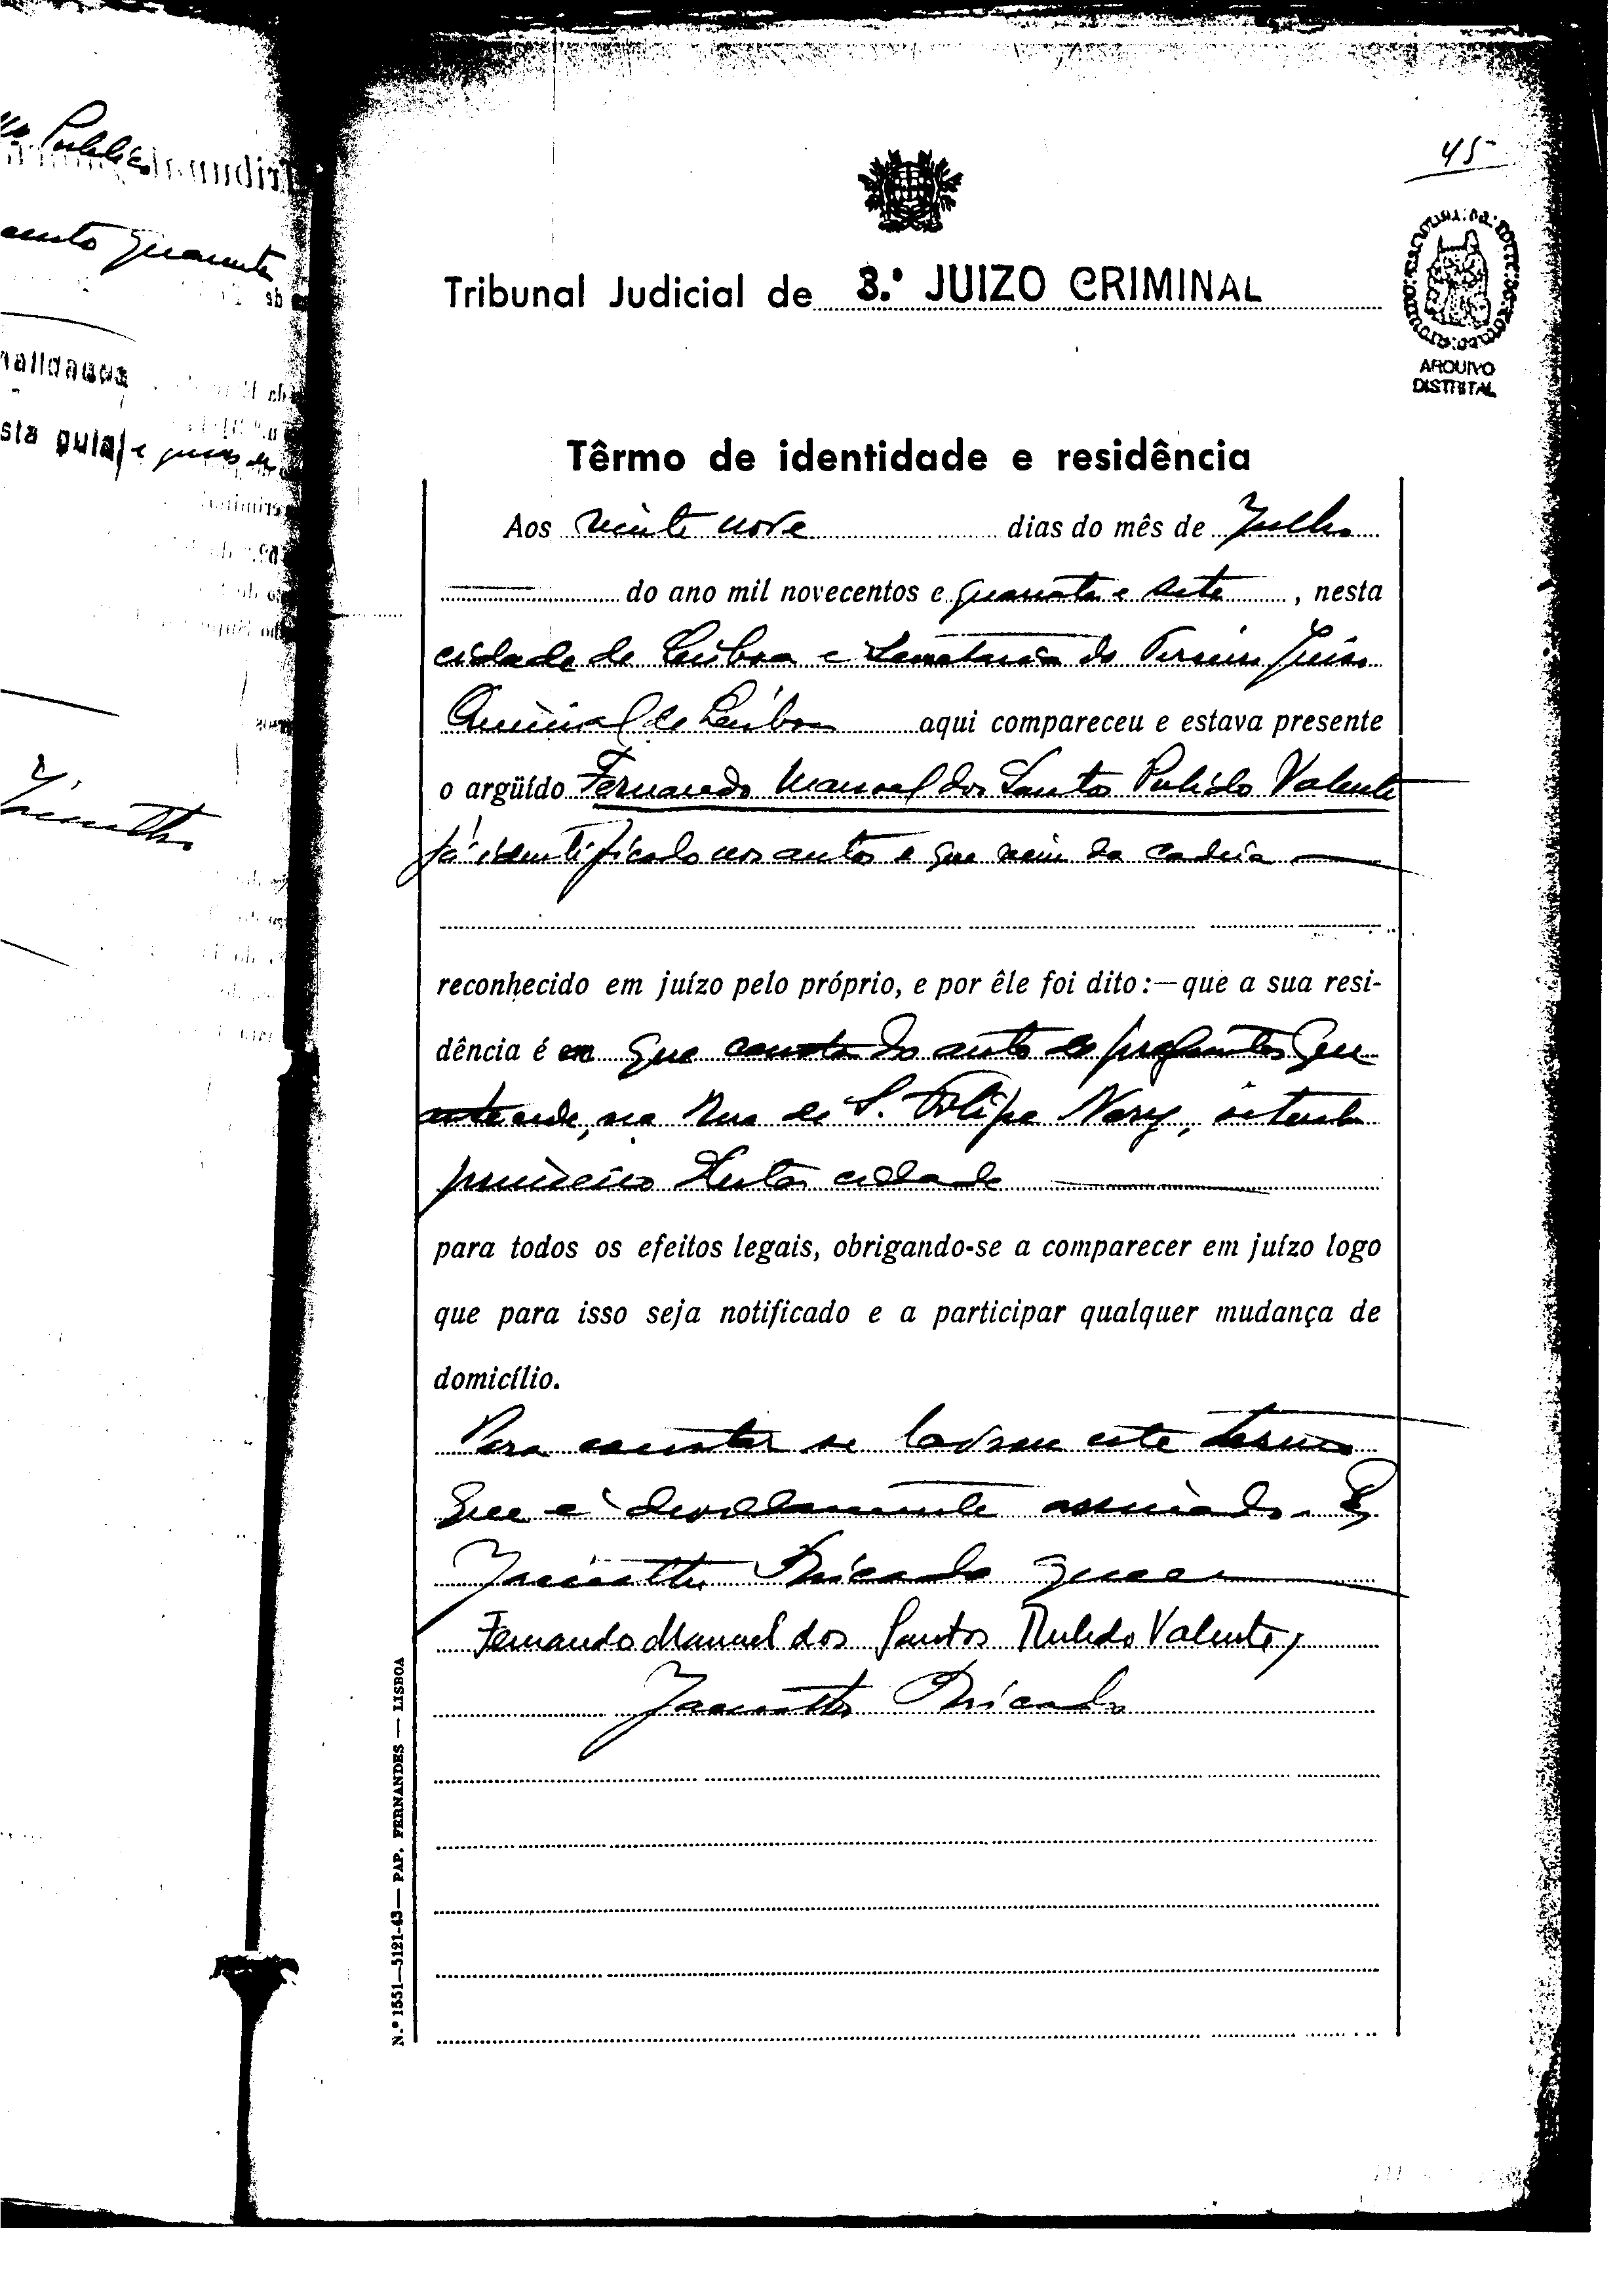 45
Tribunal Judicial de 3.º JUIZO CRIMINAL
ARQUIVO
DISTRITAL
Têrmo de identidade e residência
Aos vinte nove dias do mês de Julho
do ano mil novecentos e quarenta e sete, nesta
cidade de Lisboa e Secretaria do Terceiro Juizo
Criminal de Lisboa aqui compareceu e estava presente
o argüido Fernando Manuel dos Santos Pulido Valente
já identificado nos autos e que veio da cadeia
reconhecido em juízo pelo próprio, e por êle foi dito:—que a sua resi-
dência é em que consta do auto de perguntas que
na Rua de S. Filipe Nery, setenta
primeiro desta cidade
para todos os efeitos legais, obrigando-se a comparecer em juízo logo
que para isso seja notificado e a participar qualquer mudança de
domicílio.
Para constar se lavrou este termo
que é devidamente assinado. E
Jacintho Ricardo
Fernando Manuel dos Santos Pulido Valente
Jacintho Ricardo
N.º 1551—5121-43— PAP. FERNANDES — LISBOA